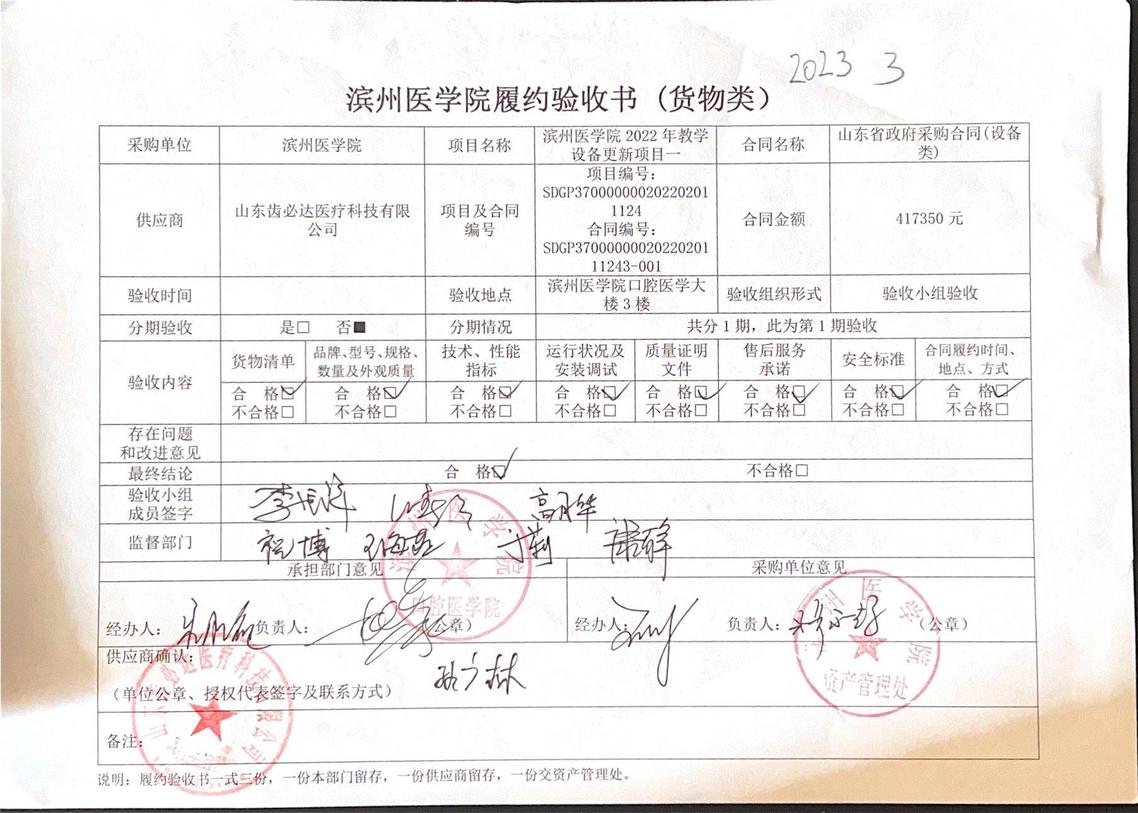 2023 3
滨州医学院履约验收书（货物类）
采购单位 滨州医学院 项目名称 滨州医学院 2022 年教学设备更新项目一 合同名称 山东省政府采购合同(设备类)
供应商 山东齿必达医疗科技有限公司 项目及合同编号 项目编号：SDGP370000000202202011124 合同编号：SDGP3700000002022020111243-001 合同金额 417350 元
验收时间 验收地点 滨州医学院口腔医学大楼 3 楼 验收组织形式 验收小组验收
分期验收 是□ 否■ 分期情况 共分 1 期，此为第 1 期验收
验收内容 货物清单 品牌、型号、规格、数量及外观质量 技术、性能指标 运行状况及安装调试 质量证明文件 售后服务承诺 安全标准 合同履约时间、地点、方式
合 格☑ 合 格☑ 合 格☑ 合 格☑ 合 格☑ 合 格☑ 合 格☑ 合 格☑
不合格□ 不合格□ 不合格□ 不合格□ 不合格□ 不合格□ 不合格□ 不合格□
存在问题和改进意见
最终结论 合 格☑ 不合格□
验收小组成员签字 高月华
监督部门
承担部门意见 采购单位意见
经办人： 负责人： （公章） 经办人： 负责人： （公章）
滨州医学院
口腔医学院
滨州医学院
资产管理处
供应商确认：
（单位公章、授权代表签字及联系方式）
山东齿必达医疗科技有限公司
备注：
说明：履约验收书一式三份，一份本部门留存，一份供应商留存，一份交资产管理处。